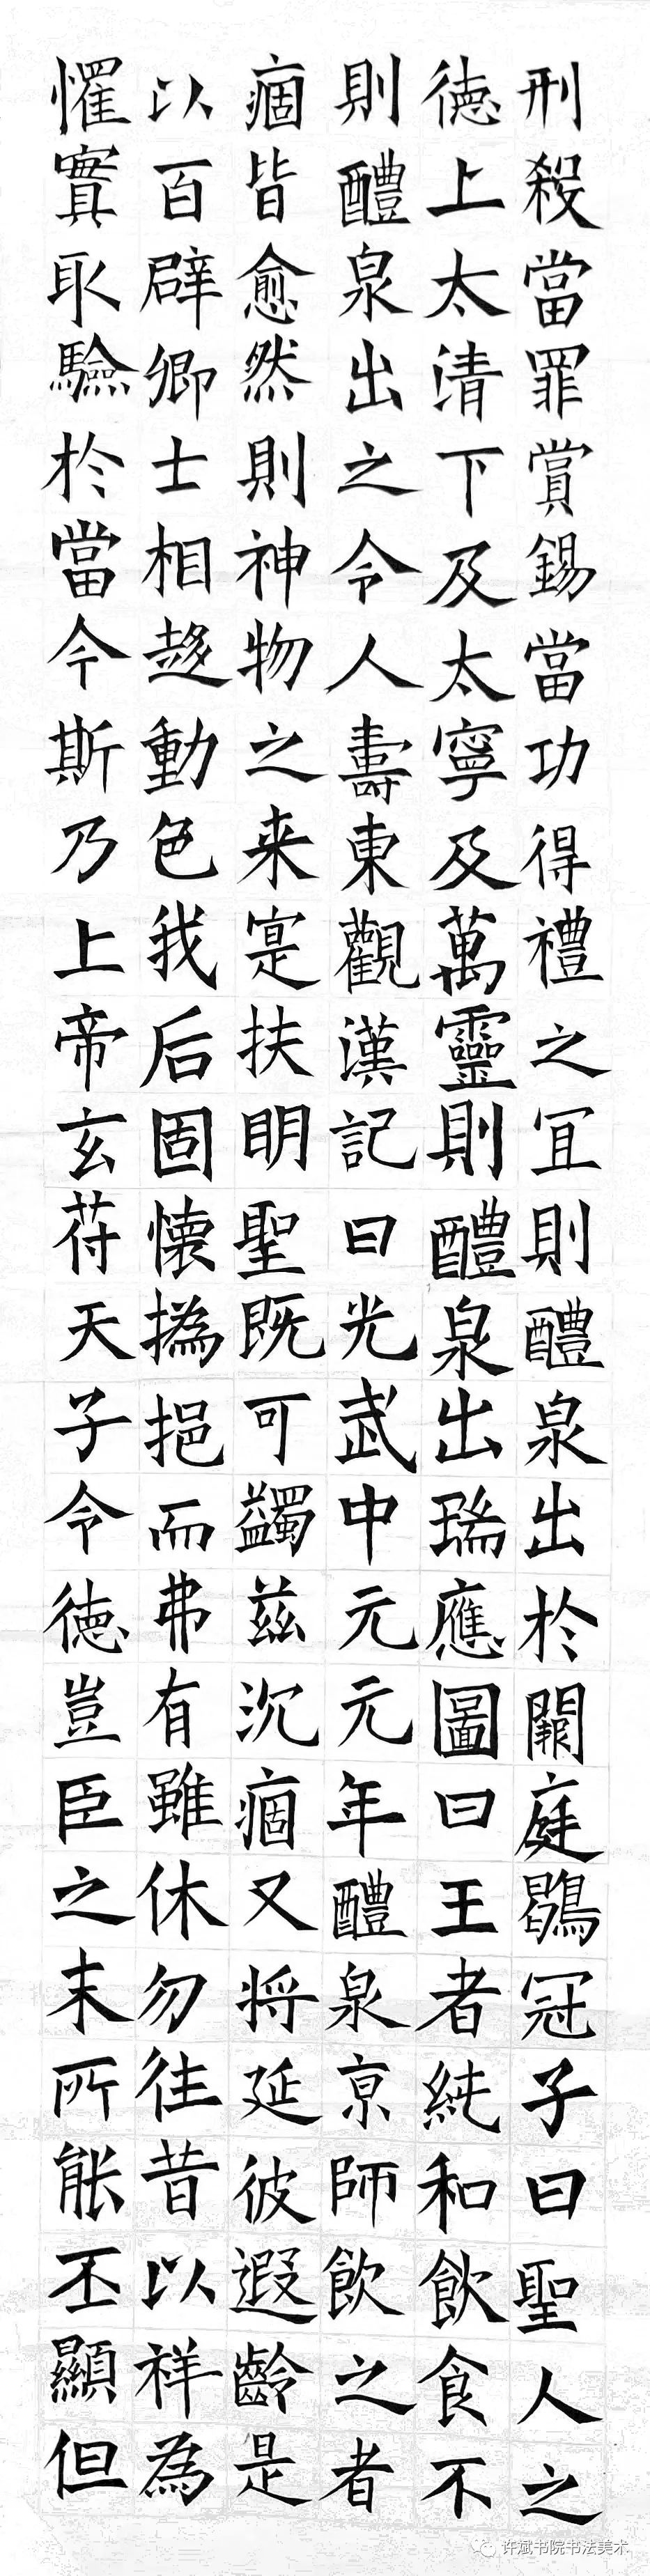 刑殺當罪賞錫當功得禮之冝則醴泉出於闕庭鶡冠子曰聖人之
徳上太清下及太寧及萬靈則醴泉出瑞應圖曰王者純和飲食不
則醴泉出之令人壽東觀漢記曰光武中元元年醴泉京師飲之者
痼皆愈然則神物之来寔扶明聖既可蠲兹沉痼又将延彼遐齡是
以百辟卿士相趍動色我后固懐撝挹而弗有雖休勿往昔以祥為
懼實取驗於當今斯乃上帝玄苻天子令徳豈臣之末所能丕顯但
许斌书院书法美术